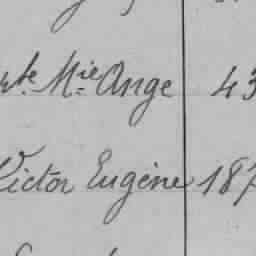 Mie Ange 43
Victor Eugène 187